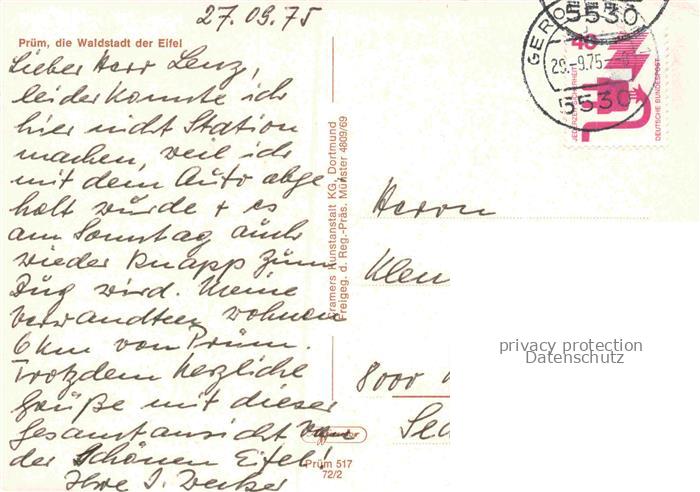 27.09.75
Prüm, die Waldstadt der Eifel
Lieber Herr Lenz,
leider konnte ich
hier nicht Station
machen, weil ich
mit dem Auto abge
holt wurde + es
am Sonntag auch
wieder knapp zum
Zug wird. Meine
Verwandten wohnen
6 km von Prüm.
Trotzdem herzliche
Grüße mit dieser
Gesamtansicht von
der schönen Eifel!
Ihre I.
Prüm 517
72/2
Cramers Kunstanstalt KG, Dortmund
Freigeg. d. Reg.-Präs. Münster 4809/69
5530
GERO
29.-9.75
5530
40
JEDERZEIT SICHERHEIT
DEUTSCHE BUNDESPOST
Herrn
8000
privacy protection
Datenschutz